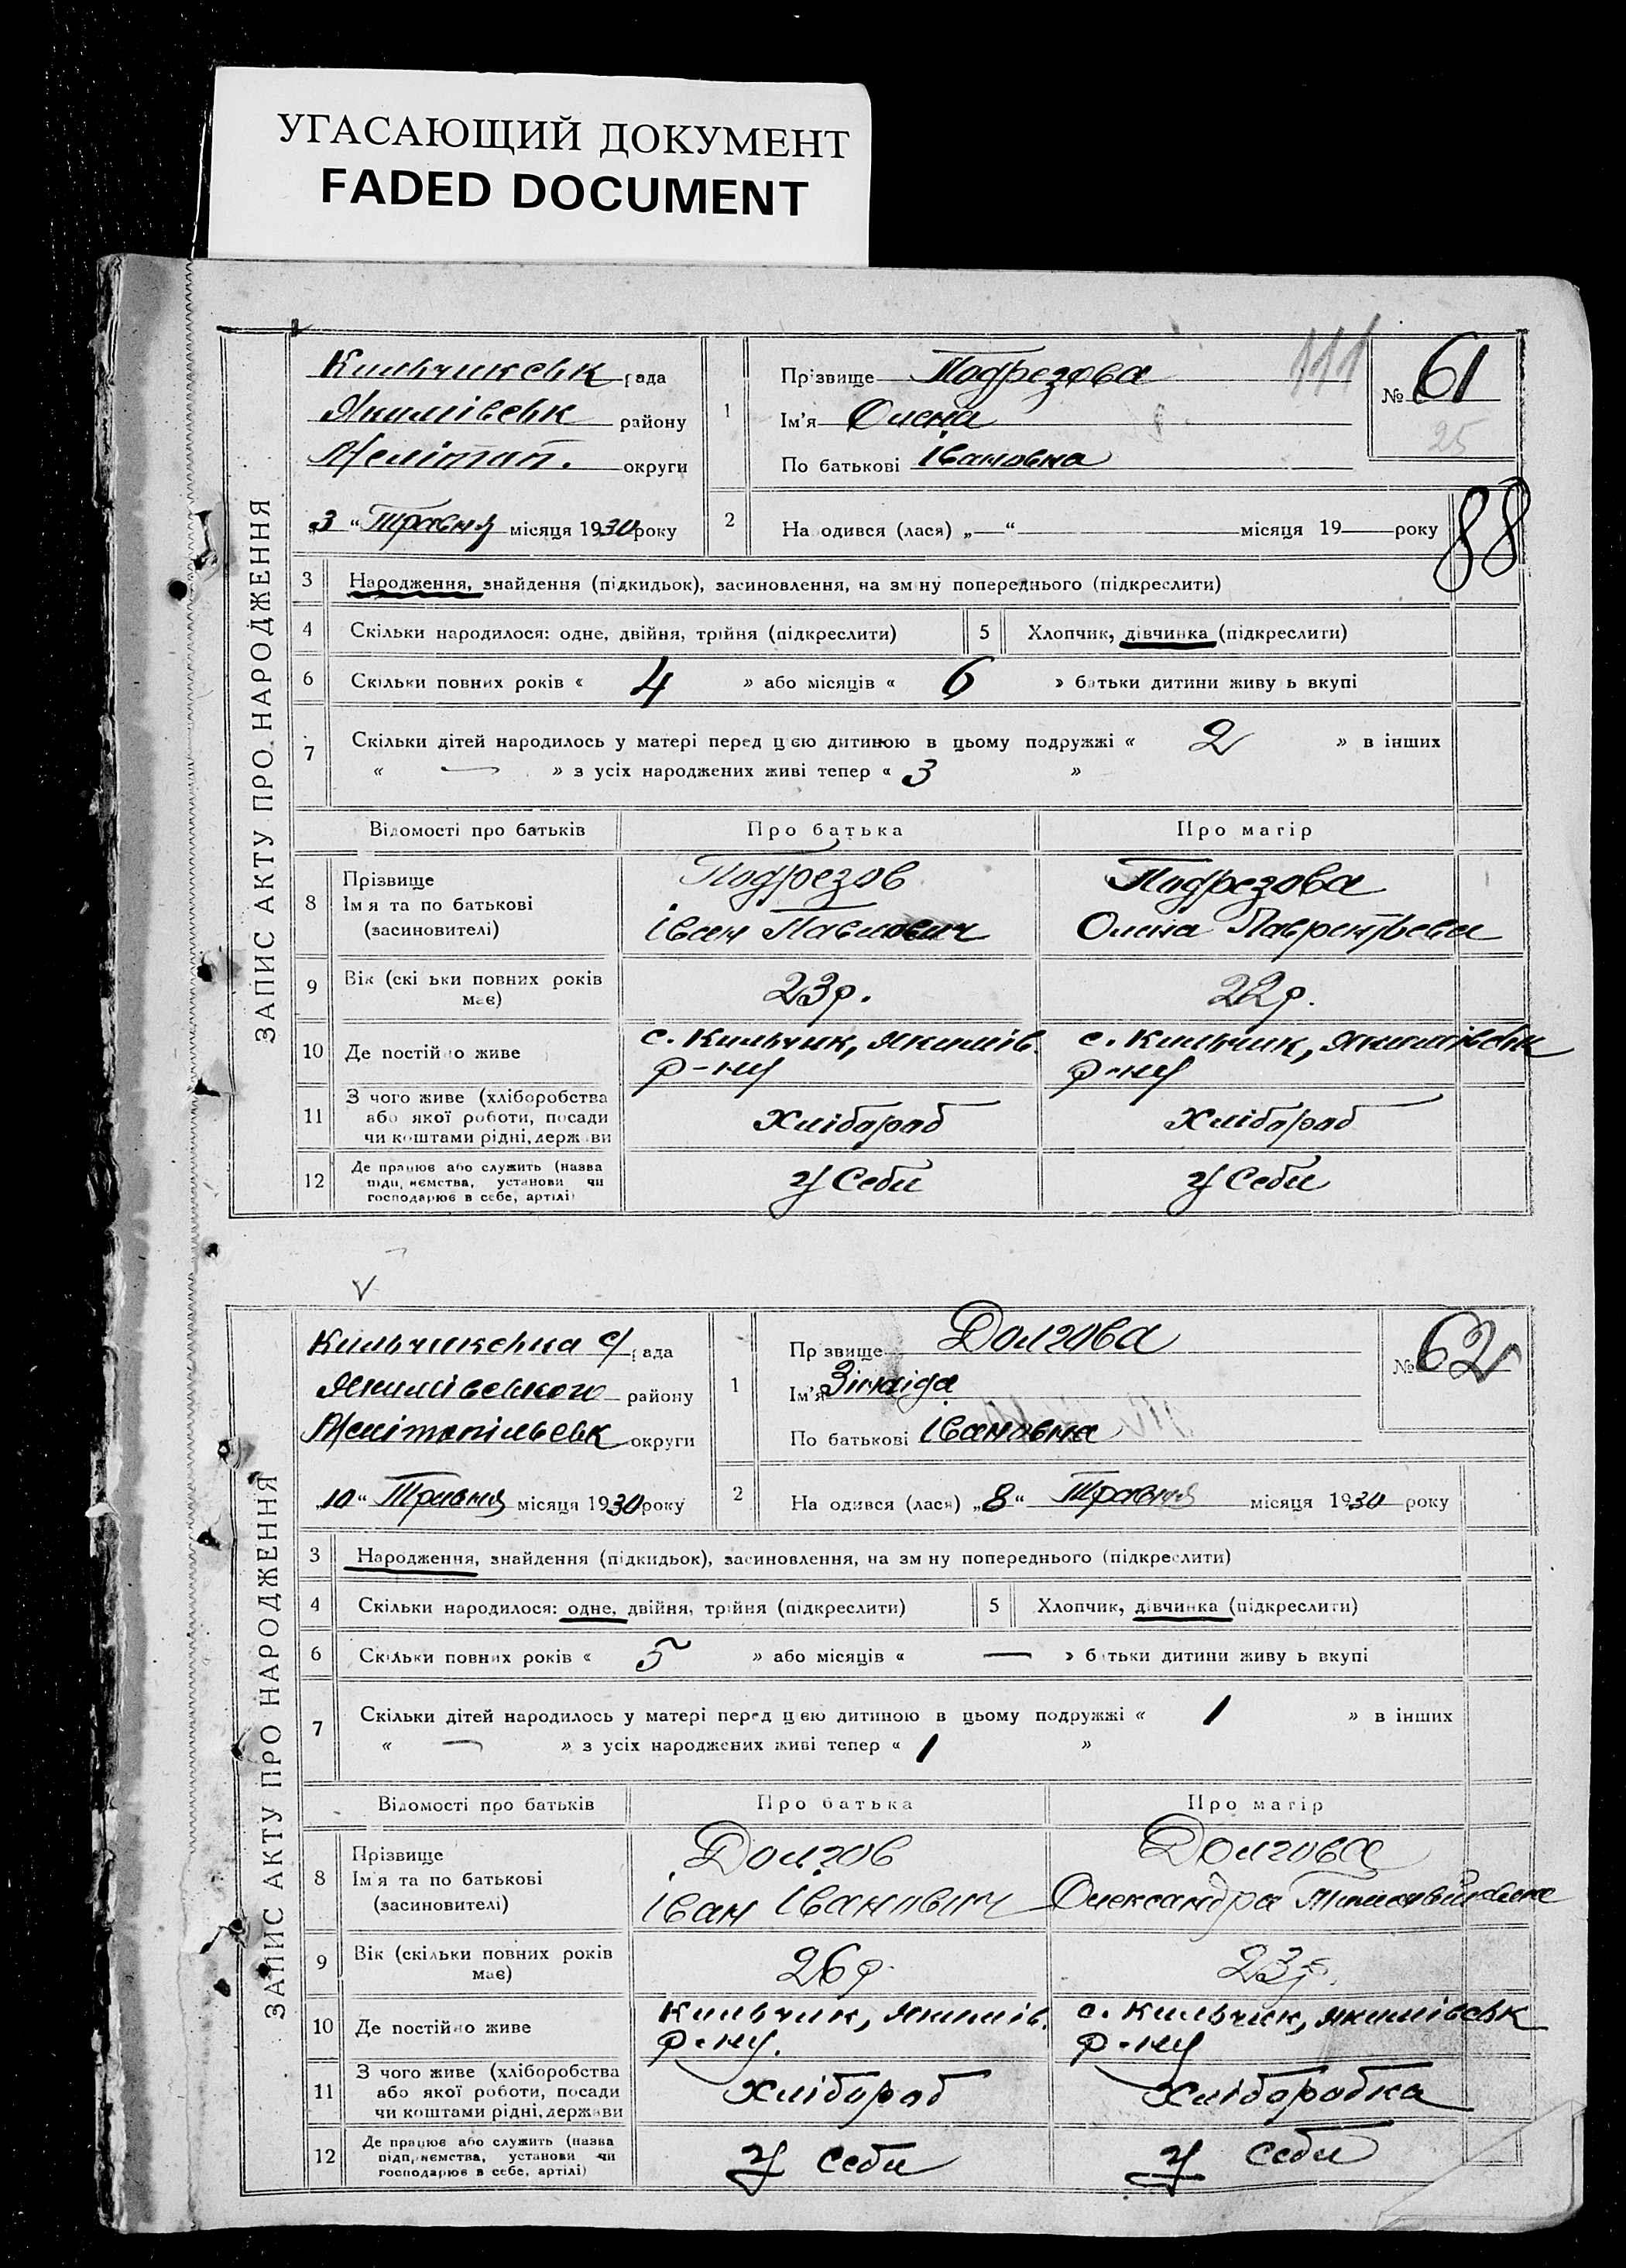 УГАСАЮЩИЙ ДОКУМЕНТ
FADED DOCUMENT
ЗАПИС АКТУ ПРО НАРОДЖЕННЯ
Кильчикськ рада
Якимівськ району
Мелітоп. округи
„3“ Травня місяця 1930 року
1
Прізвище Подрезова
Ім'я Олена
По батькові Івановна
111
№ 61
25
88
2 На одився (лася) „—“ — місяця 19— року
3 Народження, знайдення (підкидьок), засиновлення, на зм ну попереднього (підкреслити)
4 Скільки народилося: одне, двійня, трійня (підкреслити) 5 Хлопчик, дівчинка (підкреслити)
6 Скільки повних років « 4 » або місяців « 6 » батьки дитини живу ь вкупі
7 Скільки дітей народилось у матері перед цією дитиною в цьому подружжі « 2 » в інших
« — » з усіх народжених живі тепер « 3 »
Відомості про батьків Про батька Про матір
8 Прізвище Ім я та по батькові (засиновителі)
Подрезов Подрезова
Іван Павлович Олена Лаврентьевн
9 Вік (скі ьки повних років має) 23 р. 22 р.
10 Де постійно живе с. Кильчик, Якимів. с. Кильчик, Якимівськ
р-ну р-ну
11 З чого живе (хліборобства
або якої роботи, посади
чи коштами рідні, держави
Хлібороб Хлібороб
12 Де працює або служить (назва
підприємства, установи чи
господарює в себе, артілі)
У Себи У Себи
ЗАПИС АКТУ ПРО НАРОДЖЕННЯ
V
Кильчикська с/рада
Якимівського району
Мелітопільськ округи
„10“ Травня місяця 1930 року
1
Пр звище Долгова
Ім'я Зінаіда
По батькові Івановна
№ 62
2 На одився (лася) „8“ Травня місяця 1930 року
3 Народження, знайдення (підкидьок), засиновлення, на зм ну попереднього (підкреслити)
4 Скільки народилося: одне, двійня, трійня (підкреслити) 5 Хлопчик, дівчинка (підкреслити)
6 Скільки повних років « 5 » або місяців « — » батьки дитини живу ь вкупі
7 Скільки дітей народилось у матері перед цією дитиною в цьому подружжі « 1 » в інших
« — » з усіх народжених живі тепер « 1 »
Відомості про батьків Про батька Про матір
8 Прізвище Ім'я та по батькові (засиновителі)
Долгов Долгова
Іван Іванович Олександра
9 Вік (скільки повних років має) 26 р. 23 р.
10 Де постійно живе Кильчик, Якимів. с. Кильчик, Якимівськ
р-ну. р-ну
11 З чого живе (хліборобства
або якої роботи, посади
чи коштами рідні, держави
Хлібороб Хліборобка
12 Де працює або служить (назва
підприємства, установи чи
господарює в себе, артілі)
У Себи У Себи